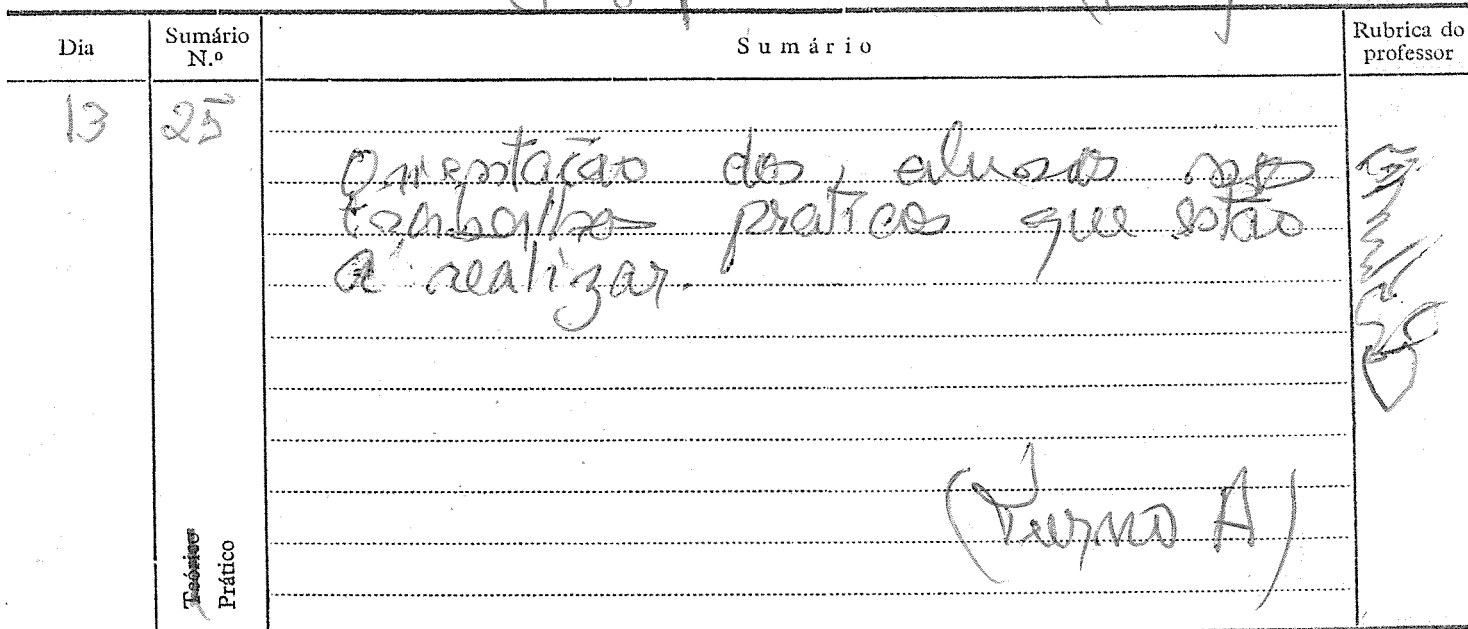 Dia Sumário N.º Sumário Rubrica do professor
13 25
Orientação dos alunos nos
trabalhos práticos que estão
a realizar.
(Turno A)
Teórico
Prático